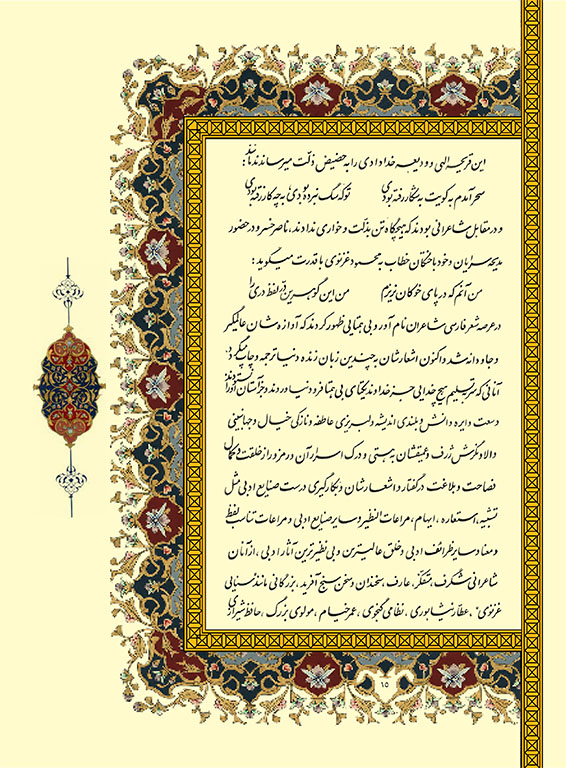 این قریحه الهی و ودیعه خدادادی را به حضیض ذلّت میرساندند مانند:
سحر آمدم به کویت به شکار رفته بودی تو که سگ نبرده بودی به چه کار رفته بودی
و در مقابل شاعرانی بودند که هیچگاه تن به ذلّت و خواری ندادند، ناصر خسرو در حضور
مدیحه سرایان و خودباختگان خطاب به محمود غزنوی با قدرت میگوید:
من آنم که در پای خوکان نریزم من این گوهرین دُرّ لفظ دری را
در عرصه شعر فارسی شاعران نام آور و بی همتایی ظهور کردند که آوازه شان عالمگیر
و جاودانه شد و اکنون اشعارشان به چندین زبان زنده دنیا ترجمه و چاپ میگردد:
آنانی که سر تسلیم هیچ خدایی جز خداوند یکتای بی همتا فرود نیاوردند و جز آستان او را
وسعت دایره دانش و بلندی اندیشه و لبریزی عاطفه و نازکی خیال و جهانبینی
والا و نگرش ژرف و عمیقشان به هستی و درک اسرار آن و رمز و راز خلقت و کمال
فصاحت و بلاغت در گفتار و اشعارشان و بکارگیری درست صنایع ادبی مثل
تشبیه، استعاره، ایهام، مراعات النظیر و سایر صنایع ادبی و مراعات تناسب لفظ
و معنا و سایر ظرائف ادبی و خلق عالیترین و بی نظیرترین آثار ادبی، از آنان
شاعرانی شگرف، متفکّر، عارف، سخندان و سخن سنج آفرید، بزرگانی مانند سنایی
غزنوی، عطّار نیشابوری، نظامی گنجوی، عمر خیام، مولوی بزرگ، حافظ شیرازی
۱۵